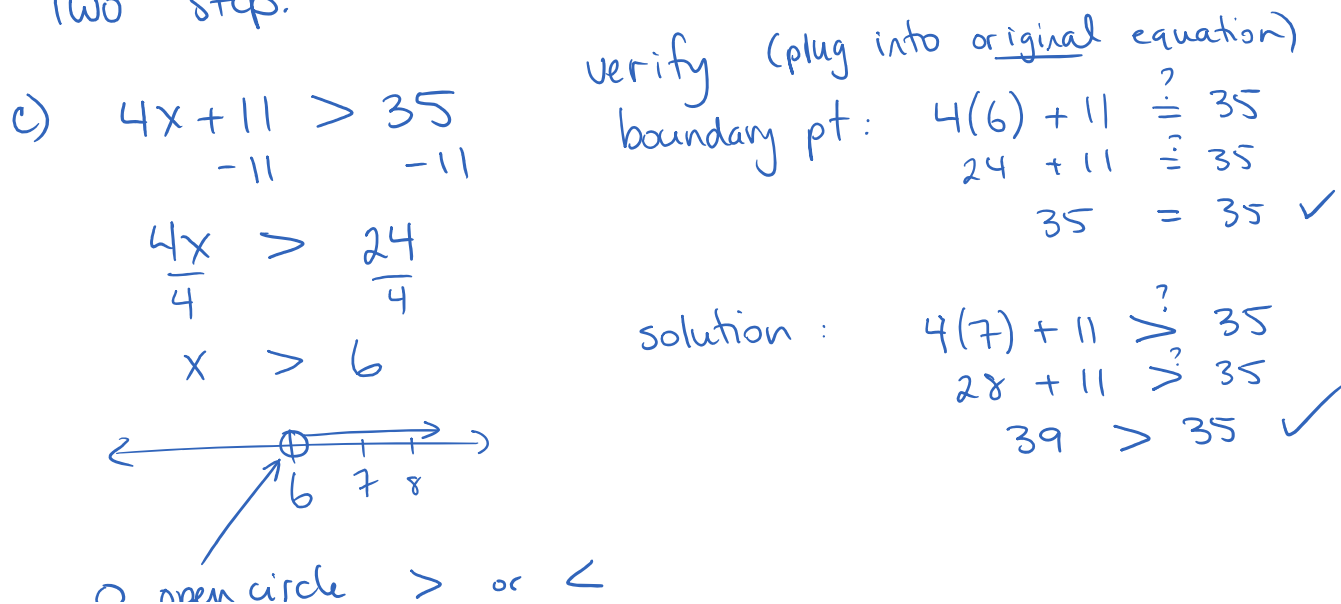 Two step:
c) 4x + 11 > 35
-11 -11
4x > 24
4 4
x > 6
6 7 8
O open circle > or <
verify (plug into original equation)
boundary pt: 4(6) + 11 ≟ 35
24 + 11 ≟ 35
35 = 35 ✓
solution : 4(7) + 11 >? 35
28 + 11 >? 35
39 > 35 ✓